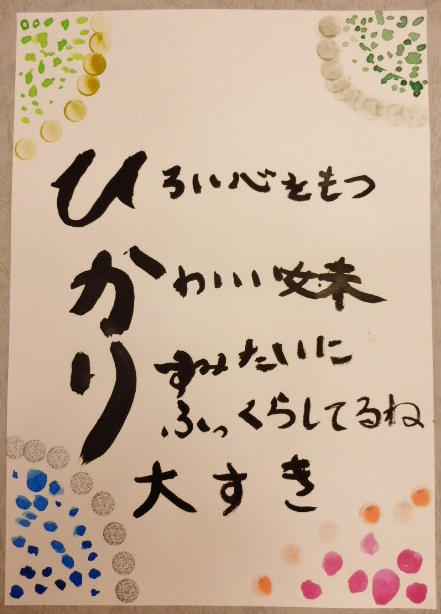 ひろい心をもつ
かわいい妹
りすみたいに
ふっくらしてるね
大すき